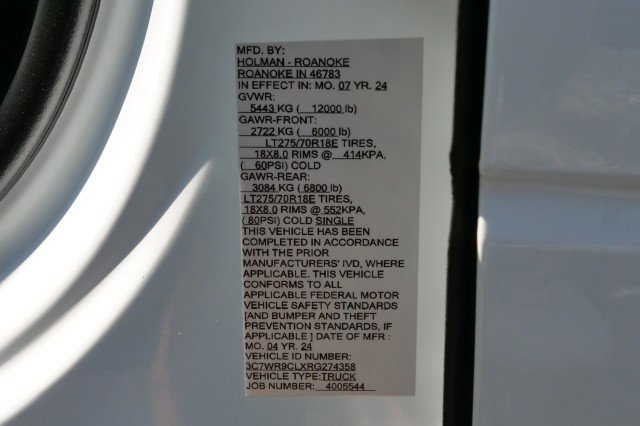 MFD. BY:
HOLMAN - ROANOKE
ROANOKE IN 46783
IN EFFECT IN: MO. 07 YR. 24
GVWR:
5443 KG ( 12000 lb)
GAWR-FRONT:
2722 KG ( 6000 lb)
LT275/70R18E TIRES,
18X8.0 RIMS @ 414KPA,
( 60PSI) COLD
GAWR-REAR:
3084 KG (6800 lb)
LT275/70R18E TIRES,
18X8.0 RIMS @ 552KPA,
( 80PSI) COLD SINGLE
THIS VEHICLE HAS BEEN
COMPLETED IN ACCORDANCE
WITH THE PRIOR
MANUFACTURERS' IVD, WHERE
APPLICABLE. THIS VEHICLE
CONFORMS TO ALL
APPLICABLE FEDERAL MOTOR
VEHICLE SAFETY STANDARDS
[AND BUMPER AND THEFT
PREVENTION STANDARDS, IF
APPLICABLE ] DATE OF MFR :
MO. 04 YR. 24
VEHICLE ID NUMBER:
3C7WR9CLXRG274358
VEHICLE TYPE:TRUCK
JOB NUMBER: 4005544